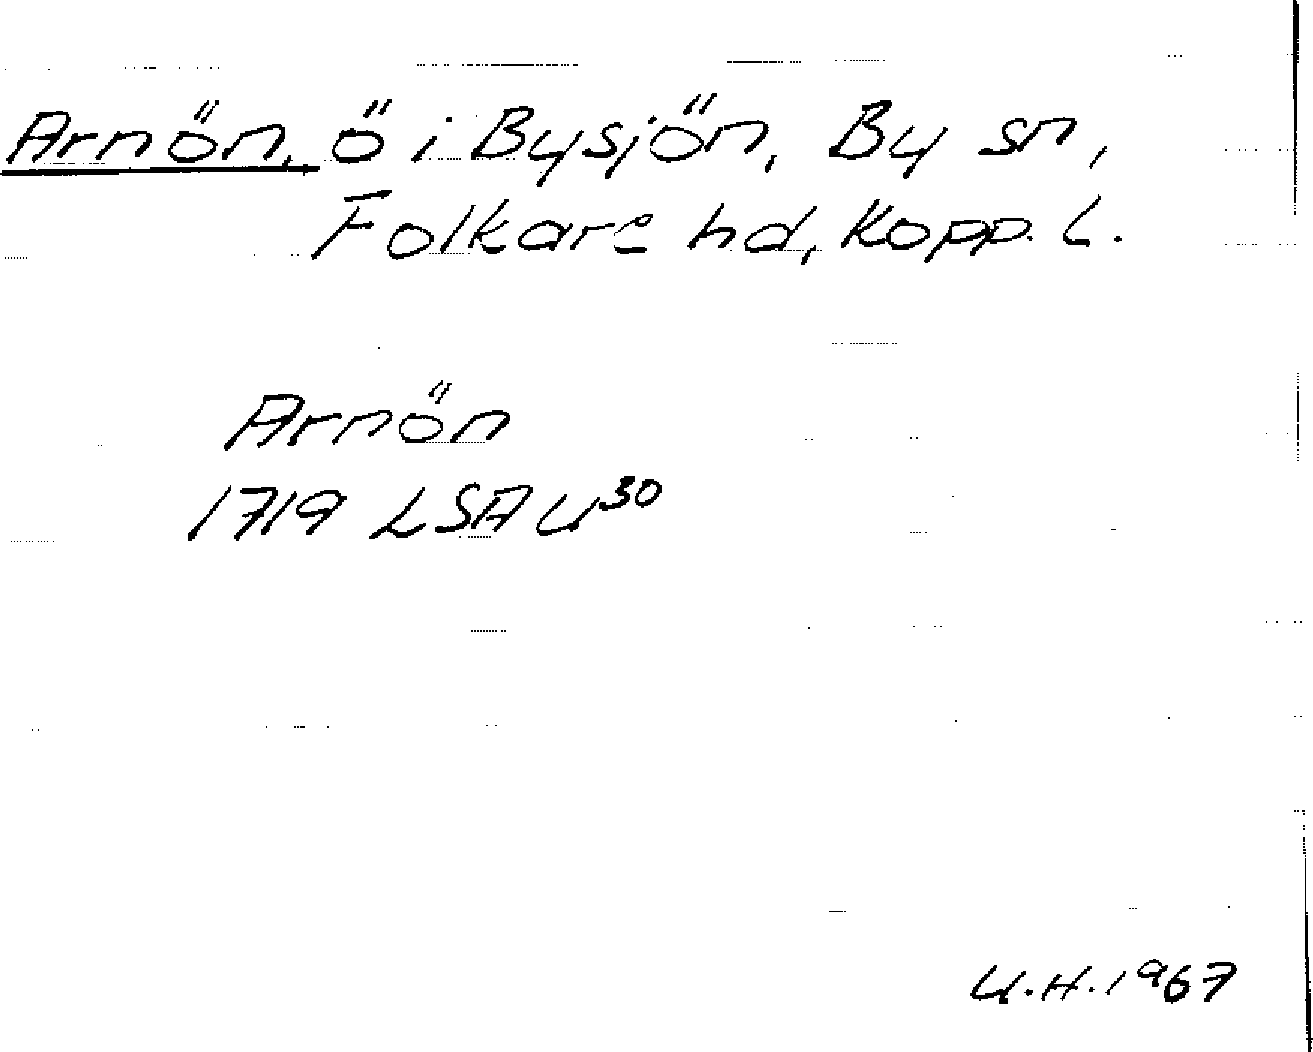 Arnön, ö i Bysjön, By sn,
Folkare hd, Kopp. L.
Arnön
1719 LSA U³⁰
U.H. 1967